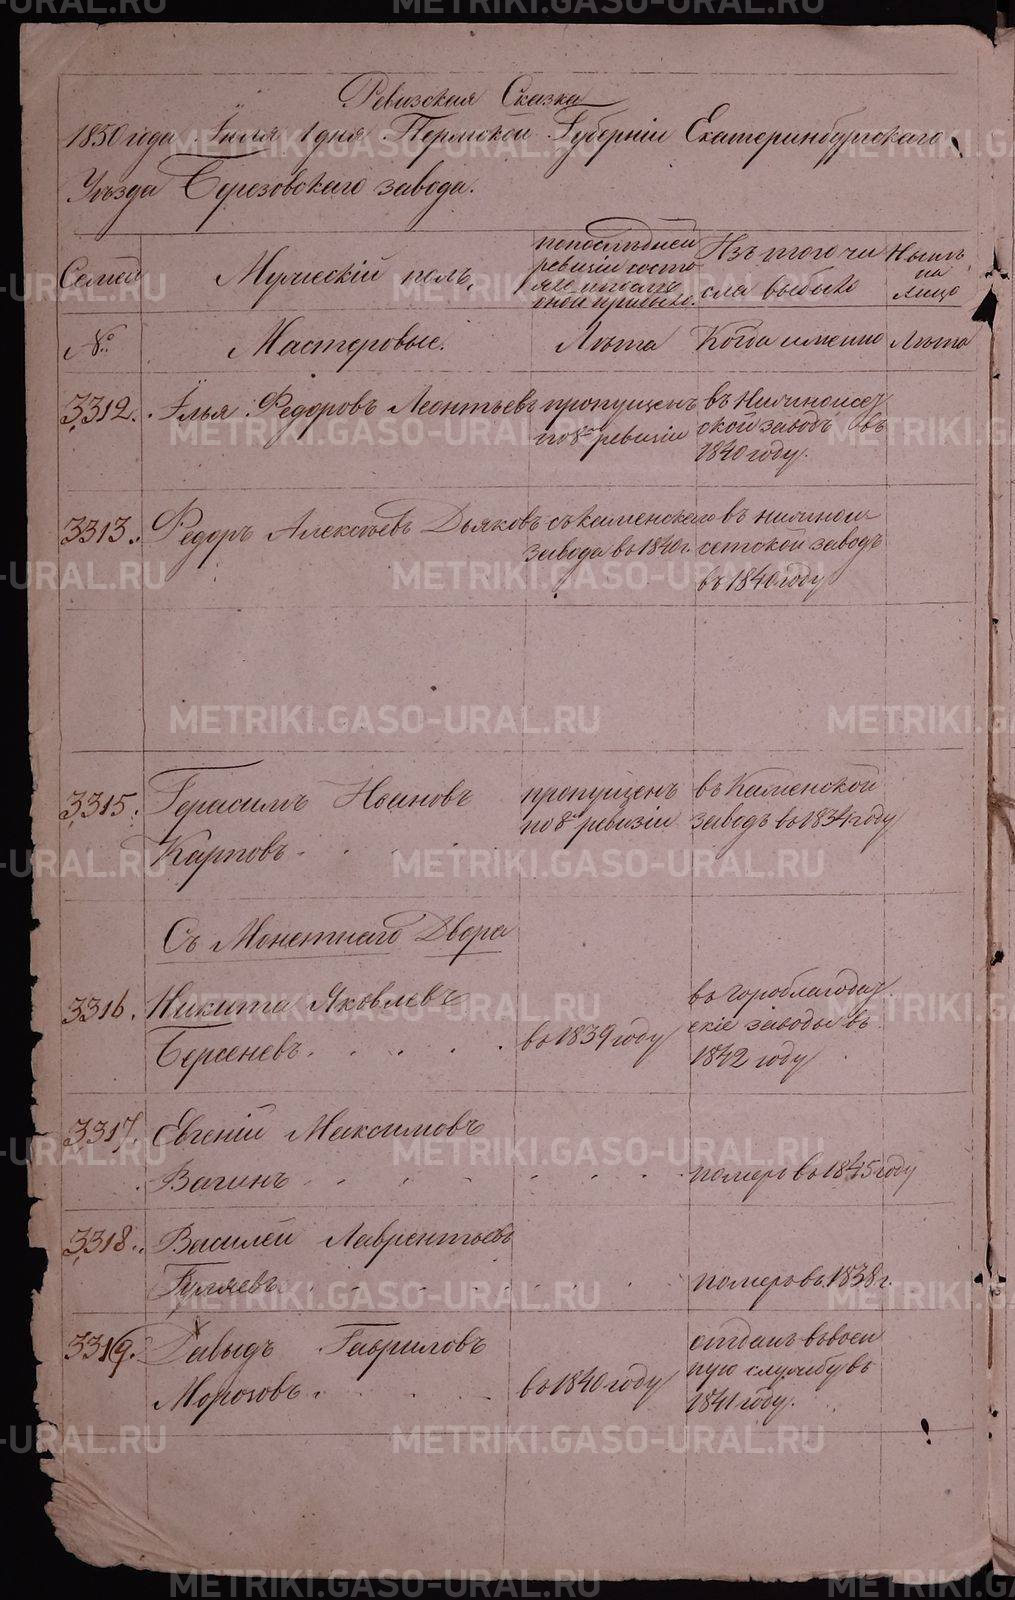 Ревизская Сказка
1850 года Iюля 1 дня Пермской Губернiи Екатеринбургскаго
Уѣзда Березовскаго завода.
Семей
Мужескiй полъ,
по последней
ревизiи состо
яло и после
оной прибыло.
Изъ того чи
сла выбыло
Нынѣ
на
лицо
№
Мастеровые.
Лѣта
Когда именно
Лѣта
3312. Илья Федоровъ Леонтьевъ
пропущенъ
по 8й ревизiи
въ Нижнеисет
ской заводъ въ
1840 году.
3313. Федоръ Алексѣевъ Дьяковъ
съ Каменскаго
завода въ 1840 г.
въ Нижнеи
сетской заводъ
въ 1840 году
3315. Герасимъ Ивановъ
Карповъ
пропущенъ
по 8й ревизiи
въ Каменской
заводъ въ 1834 году
Съ Монетнаго Двора
3316. Никита Яковлевъ
Берсеневъ
въ 1839 году
въ Гороблагодат
скiе заводы въ
1842 году
3317. Евгенiй Максимовъ
Вагинъ
померъ въ 1845 году
3318. Василей Лаврентьевъ
Гуляевъ
померъ въ 1838 г.
3319. Давыдъ Гавриловъ
Морозовъ
въ 1840 году
отданъ въ воен
ную службу въ
1841 году.
METRIKI.GASO-URAL.RU